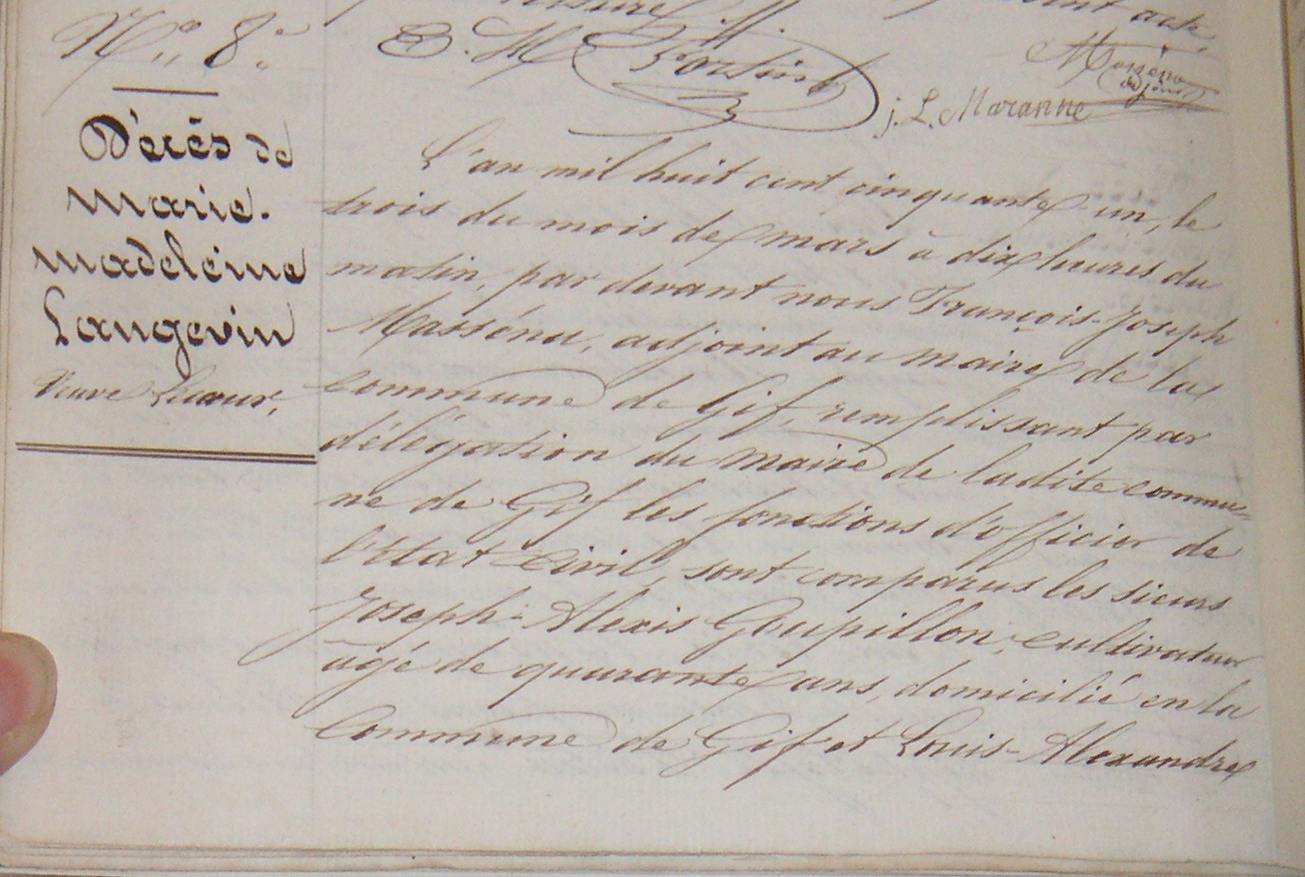 N.° 8.°
Décès de
marie-
madeleine
Langevin
Veuve Lucas.
acte.
J. L. Maranne
L'an mil huit cent cinquante un, le
trois du mois de mars à dix heures du
matin, par devant nous François-Joseph
Masséna, adjoint au maire de la
Commune de Gif, remplissant par
délégation du maire de ladite commu-
ne de Gif les fonctions d'officier de
l'état civil, sont comparus les sieurs
Joseph-Alexis Goupillon, cultivateur
âgé de quarante ans, domicilié en la
Commune de Gif et Louis-Alexandre